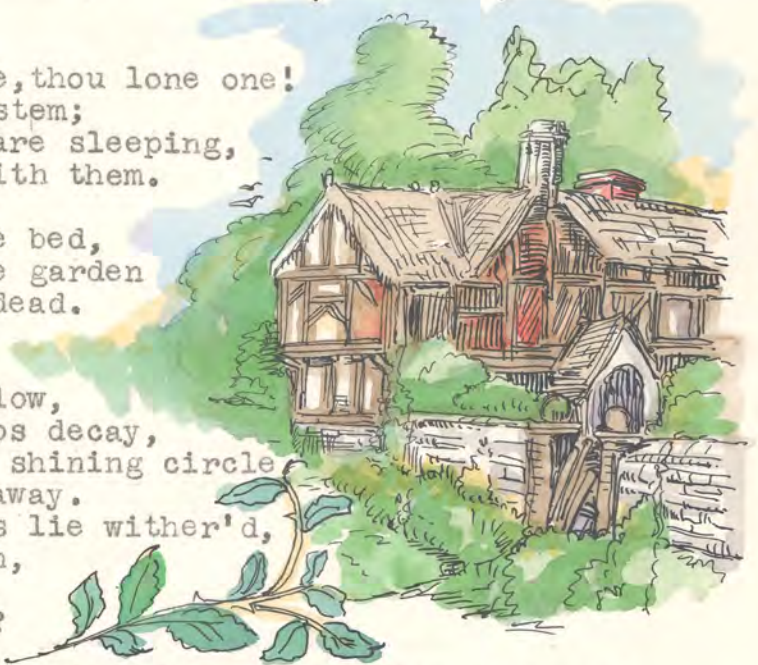 e,thou lone one!
stem;
are sleeping,
ith them.
e bed,
e garden
dead.
low,
os decay,
shining circle
away.
s lie wither'd,
n,
?